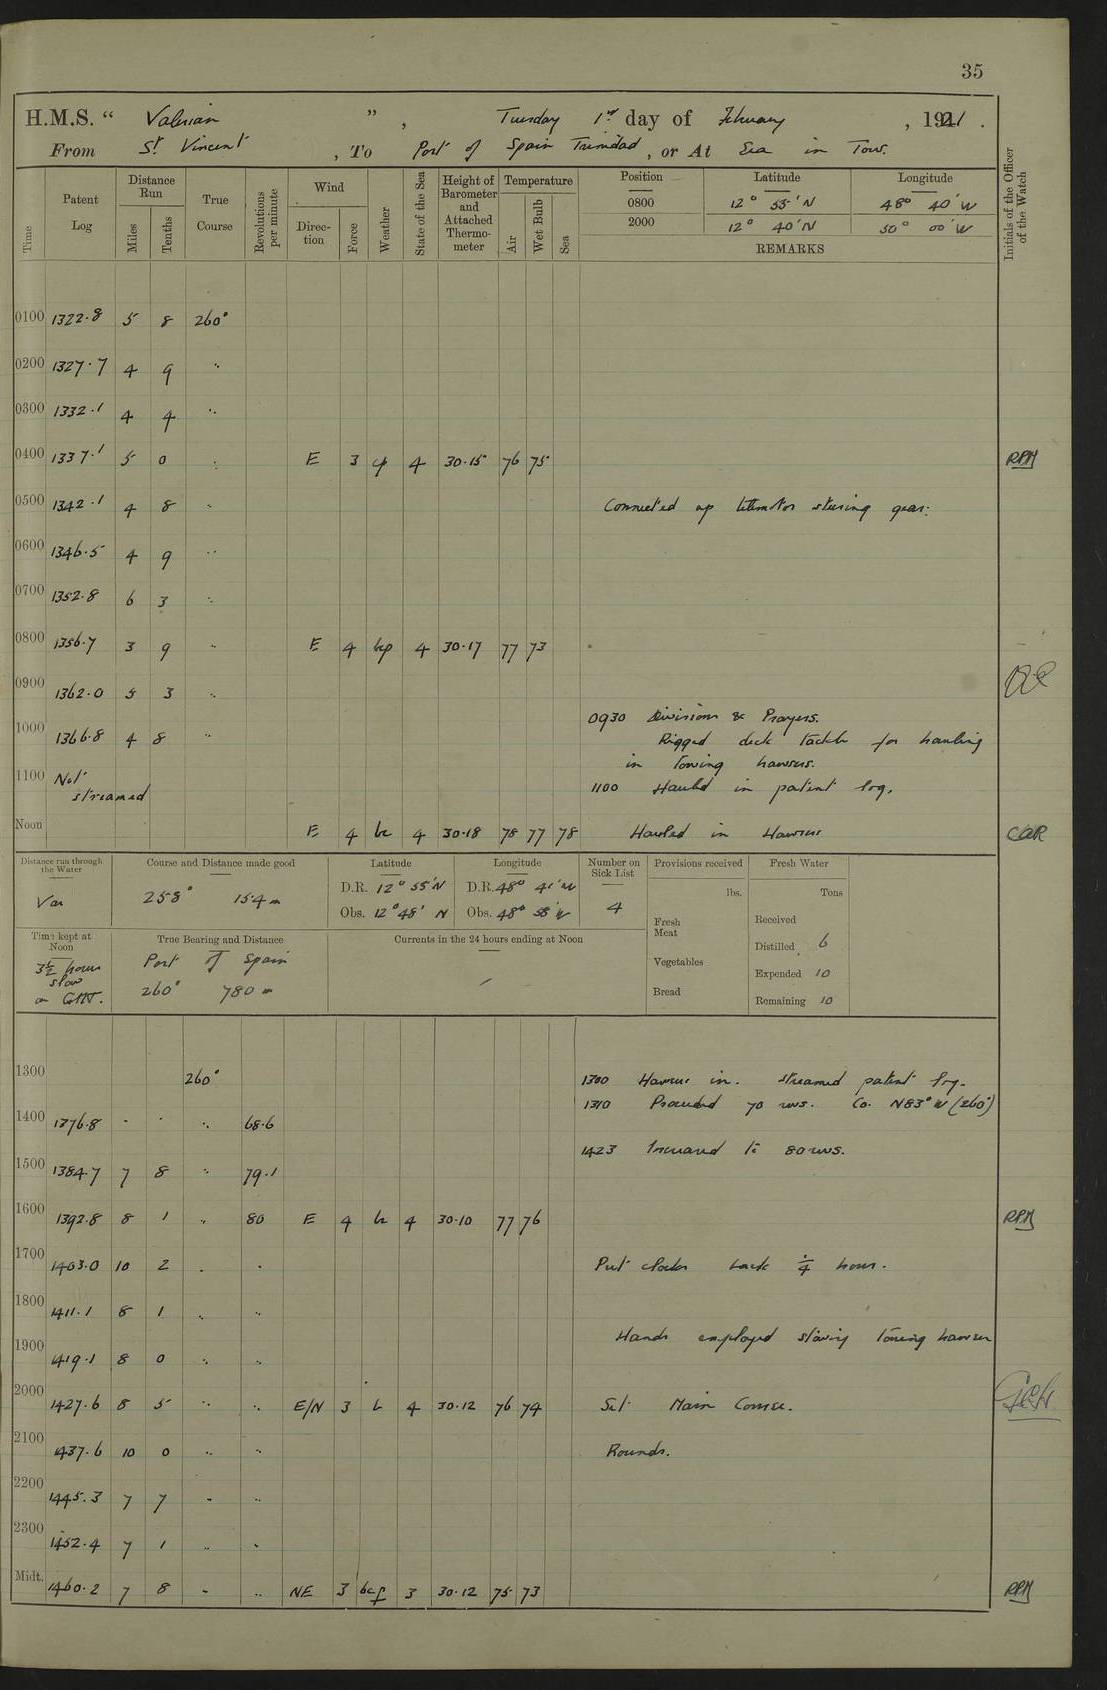 35
H.M.S. “ Valerian ” , Tuesday 1st day of February , 1921 .
From St Vincent , To Port of Spain Trinidad , or At Sea in Tow.
Time Patent Log Distance Run Miles Tenths True Course Revolutions per minute Wind Direction Force Weather State of the Sea Height of Barometer and Attached Thermometer Temperature Air Wet Bulb Sea Position Latitude Longitude Initials of the Officer of the Watch
0800 12° 55' N 48° 40' W
2000 12° 40' N 50° 00' W
REMARKS
0100 1322.8 5 8 260°
0200 1327.7 4 9 "
0300 1332.1 4 4 "
0400 1337.1 5 0 " E 3 cp 4 30.15 76 75 RPM
0500 1342.1 4 8 " Connected up steering gear.
0600 1346.5 4 9 "
0700 1352.8 6 3 "
0800 1356.7 3 9 " E 4 bcp 4 30.17 77 73
0900 1362.0 5 3 "
0930 Divisions & Prayers.
1000 1366.8 4 8 " Rigged deck tackle for hauling
in towing hawsers.
1100 Not streamed 1100 Hauled in patent log.
Noon E 4 bc 4 30.18 78 77 78 Hauled in Hawser CAR
Distance run through the Water Course and Distance made good Latitude Longitude Number on Sick List Provisions received Fresh Water
Var 258° 154 m D.R. 12° 55' N D.R. 48° 41' W 4 lbs. Tons
Obs. 12° 48' N Obs. 48° 58' W
Fresh Meat Received
Time kept at Noon True Bearing and Distance Currents in the 24 hours ending at Noon
Distilled 6
3½ hours slow on GMT. Port of Spain Vegetables
260° 780 m Expended 10
Bread Remaining 10
1300 260° 1300 Hawser in. Streamed patent log.
1310 Proceeded 70 revs. Co. N83°W (260°)
1400 1376.8 - - " 68.6
1423 Increased to 80 revs.
1500 1384.7 7 8 " 79.1
1600 1392.8 8 1 " 80 E 4 bc 4 30.10 77 76 RPM
1700 1403.0 10 2 " " Put clocks back ¼ hour.
1800 1411.1 8 1 " "
Hands employed stowing towing hawser
1900 1419.1 8 0 " "
2000 1427.6 8 5 " " E/N 3 b 4 30.12 76 74 Set Main Course.
2100 1437.6 10 0 " " Rounds.
2200 1445.3 7 7 " "
2300 1452.4 7 1 " "
Midt. 1460.2 7 8 " " NE 3 bcp 3 30.12 75 73 RPM